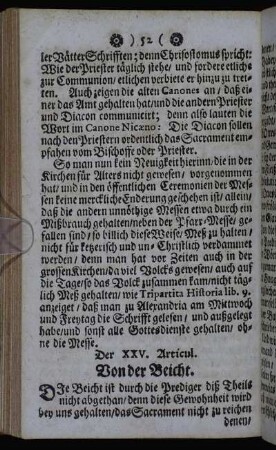 ) 52 (
ler Vätter Schrifften; denn Chrisostomus spricht:
Wie der Priester täglich stehe/ und fordere etliche
zur Communion/ etlichen verbiete er hinzu zu tret-
ten. Auch zeigen die alten Canones an/ daß ei-
ner das Amt gehalten hat/ und die andern Priester
und Diacon communicirt; denn also lauten die
Wort im Canone Nicæno: Die Diacon sollen
nach den Priestern ordentlich das Sacrament em-
pfahen vom Bischoffe oder Priester.
So man nun kein Neuigkeit hierinn/ die in der
Kirchen für Alters nicht gewesen/ vorgenommen
hat/ und in den öffentlichen Ceremonien der Mes-
sen keine merckliche Enderung geschehen ist/ allein/
daß die andern unnöthige Messen etwa durch ein
Mißbrauch gehalten/ neben der Pfarr-Messe/ ge-
fallen sind/ so billich diese Weise/ Meß zu halten/
nicht für ketzerisch und un-Christlich verdammet
werden/ denn man hat vor Zeiten auch in der
grossen Kirchen/ da viel Volcks gewesen/ auch auf
die Tage/ so das Volck zusammen kam/ nicht täg-
lich Meß gehalten/ wie Tripartita Historia lib. 9.
anzeiget/ daß man zu Alexandria am Mittwoch
und Freytag die Schrifft gelesen/ und außgelegt
habe/ und sonst alle Gottesdienste gehalten/ oh-
ne die Messe.
Der XXV. Articul.
Von der Beicht.
DIe Beicht ist durch die Prediger diß Theils
nicht abgethan/ denn diese Gewohnheit wird
bey uns gehalten/ das Sacrament nicht zu reichen
denen/